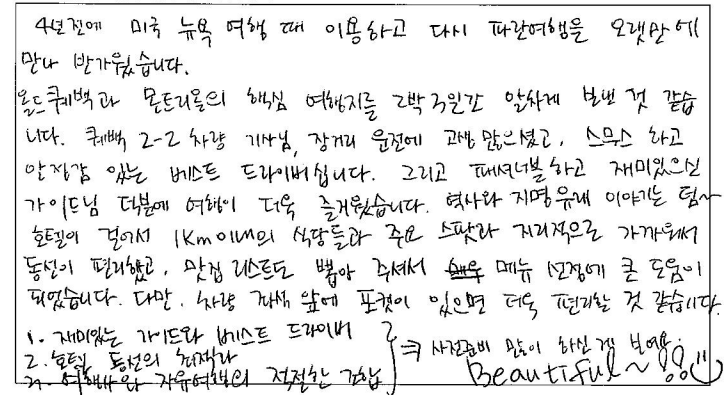 4년전에 미국 뉴욕 여행 때 이용하고 다시 파란여행을 오랫만에
만나 반가웠습니다.
올드퀘백과 몬트리올의 핵심 여행지를 2박3일간 알차게 보낸 것 같습
니다. 퀘백 2-2 차량 기사님, 장거리 운전에 고생 많으셨고, 스무스 하고
안정감 있는 베스트 드라이버십니다. 그리고 패셔너블하고 재미있으신
가이드님 덕분에 여행이 더욱 즐거웠습니다. 역사와 지명유래 이야기는 덤~
호텔이 걸어서 1km 이내의 식당들과 주요 스팟과 지리적으로 가까워서
동선이 편리했고, 맛집 리스트도 뽑아 주셔서 메뉴 선정에 큰 도움이
되었습니다. 다만, 차량 좌석 앞에 포켓이 있으면 더욱 편리할 것 같습니다.
1. 재미있는 가이드와 베스트 드라이버
2. 호텔, 동선의 최적화
3. 여행사와 자유여행의 적절한 결합
⇒ 사전준비 많이 하신게 보여요.
Beautiful~!!